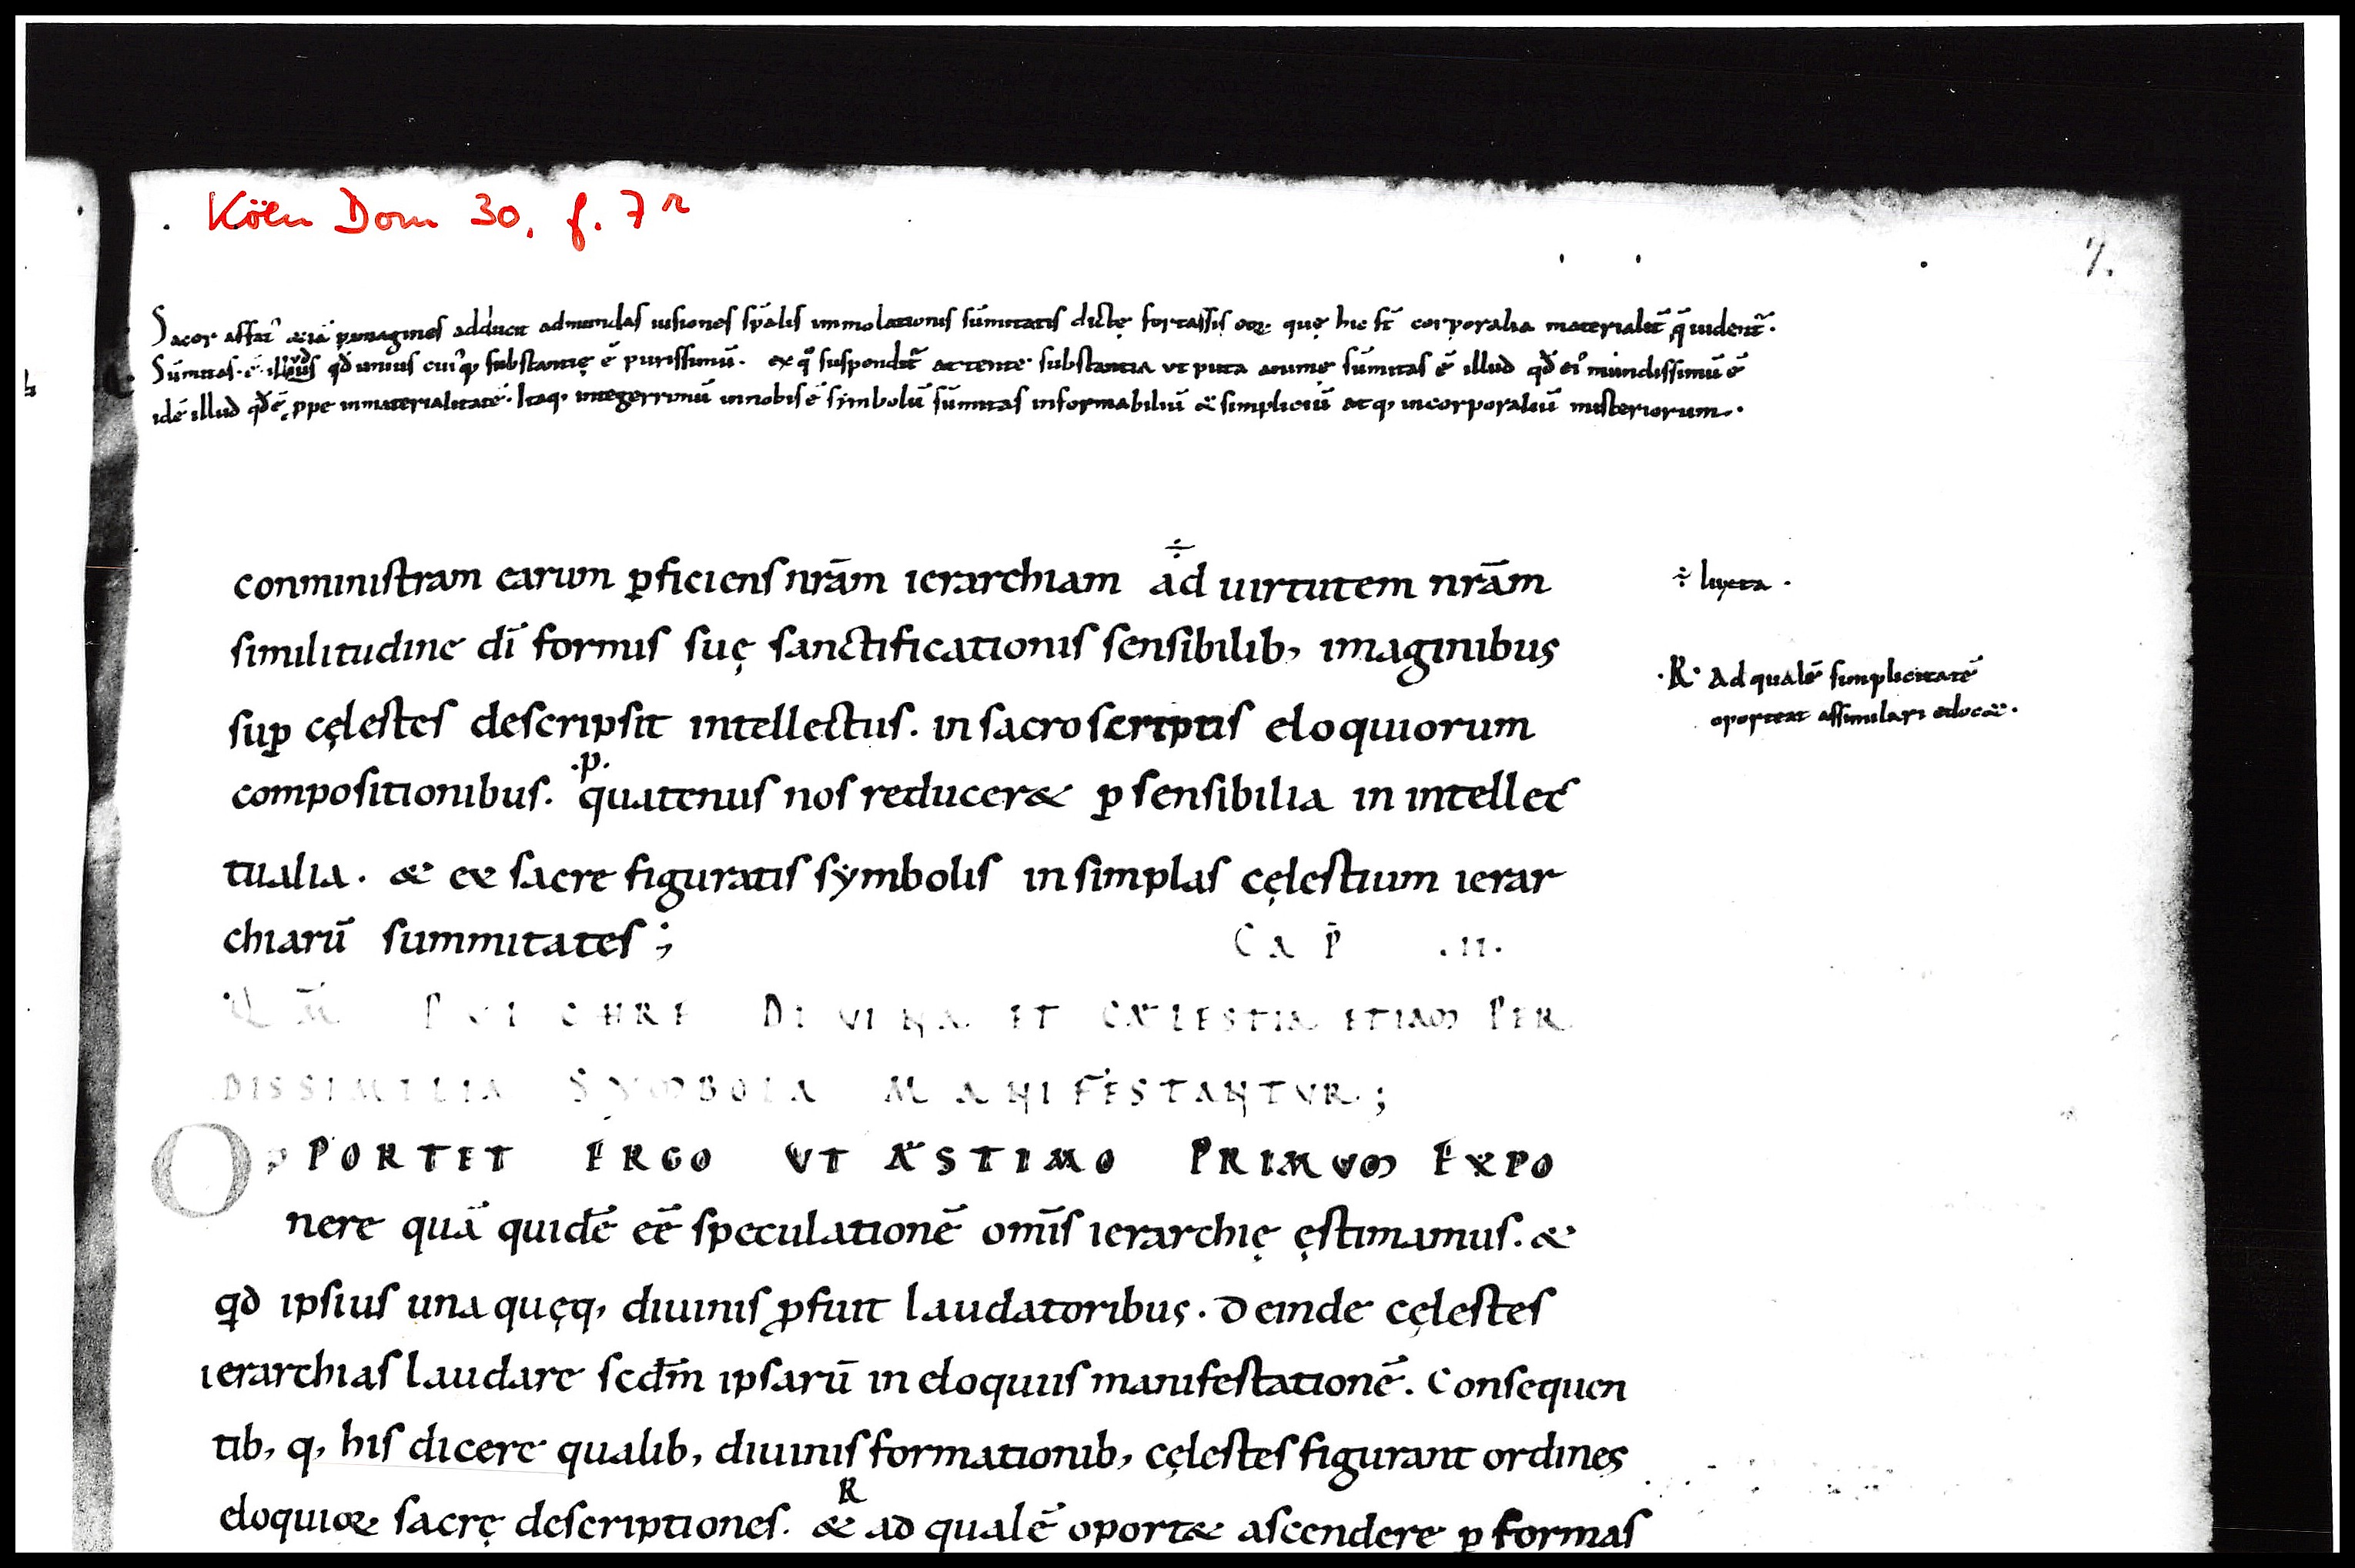 Köln Dom 30, f. 7r
7.
adducit admundas uisiones sp̄alis immolationis sūmitatis dictę fortassis quę hic st̄ corporalia materialit̄ q̄ uident̄.
Sūmitas. ē qđ unius substantię ē purissimū. ex q̊ suspendit̄ substantia ut puta animę sūmitas ē illud qđ ei mundissimū ē
idē illud qđ ē ꝓppe inmaterialitatē. Itaq, integerrimū innobis ē symbolū sūmitas informabiliū & simpliciū atq, incorporaliū misteriorum.
conministram earum ꝑficiens nrām ierarchiam ad uirtutem nrām
÷ Iuxta .
similitudine dī formis suę sanctificationis sensibilib, imaginibus
.R. Ad qualē simplicitatē
oporteat assimilari edoc&.
suꝑ cęlestes descripsit intellectus. in sacroscriptis eloquiorum
.p.
compositionibus. quatenus nos reducer& ꝑ sensibilia in intellec
tualia. & ex sacre figuratis symbolis in simplas cęlestium ierar
chiarū summitates;
CAP̄ .II.
QM̄ PULCHRE DIVINA ET CÆLESTIA ETIAM PER
DISSIMILIA SYMBOLA MANIFESTANTVR.;
OPPORTET ERGO VT ÆSTIMO PRIMVM EXPO
nere quā quidē eē speculationē om̄is ierarchię ęstimamus. &
qđ ipsius una quęq, diuinis ꝓfuit laudatoribus. Deinde cęlestes
ierarchias laudare scdm̄ ipsarū in eloquiis manifestationē. Consequen
tib, q, his dicere qualib, diuinis formationib, cęlestes figurant ordines
R
eloquioꝝ sacrę descriptiones. & ad qualē oport& ascendere ꝑ formas